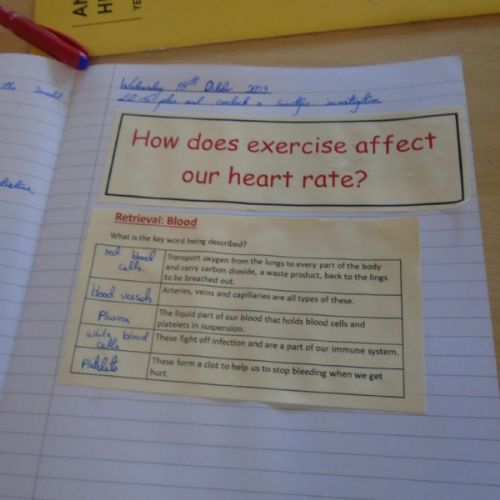 AN
H
YE
the small
Wednesday 18th October 2023
LO: To plan and conduct a scientific investigation
How does exercise affect
our heart rate?
Retrieval: Blood
What is the key word being described?
red blood cells
Transport oxygen from the lungs to every part of the body
and carry carbon dioxide, a waste product, back to the lings
to be breathed out.
blood vessels
Arteries, veins and capillaries are all types of these.
Plasma
The liquid part of our blood that holds blood cells and
platelets in suspension.
White blood
cells
These fight off infection and are a part of our immune system.
Platelets
These form a clot to help us to stop bleeding when we get
hurt.